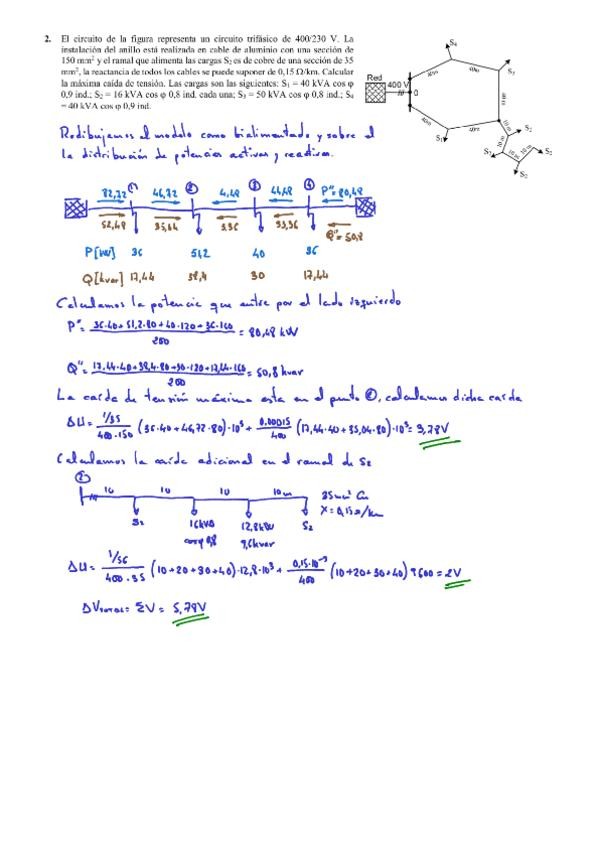 2. El circuito de la figura representa un circuito trifásico de 400/230 V. La
instalación del anillo está realizada en cable de aluminio con una sección de
150 mm² y el ramal que alimenta las cargas S₂ es de cobre de una sección de 35
mm², la reactancia de todos los cables se puede suponer de 0,15 Ω/km. Calcular
la máxima caída de tensión. Las cargas son las siguientes: S₁ = 40 kVA cos φ
0,9 ind.; S₂ = 16 kVA cos φ 0,8 ind. cada una; S₃ = 50 kVA cos φ 0,8 ind.; S₄
= 40 kVA cos φ 0,9 ind.
S₄
S₃
Red
400 V
0
S₁
S₂
S₂
S₂
S₂
10 m
10 m
10 m
10 m
Redibujamos el modelo como bialimentado y sobre el
la distribución de potencias activas y reactivas.
82,72 ① 46,72 ② 4,48 ③ 44,48 ④ P"=80,48
52,48 35,04 3,36 33,36 Q"=50,8
P[kW] 36 51,2 40 36
Q[kvar] 17,44 38,4 30 17,44
Calculamos la potencia que entre por el lado izquierdo
P"= 36·40+51,2·80+40·120+36·160 / 200 = 80,48 kW
Q"= 17,44·40+38,4·80+30·120+17,44·160 / 200 = 50,8 kvar
La caída de tensión máxima esta en el punto ②, calculamos dicha caída
ΔU= 1/35 / 400·150 (36·40+46,72·80)·10³+ 0,00015 / 400 (17,44·40+35,04·80)·10³= 3,78V
Calculamos la caída adicional en el ramal de S₂
②
10 10 10 10m 35mm² Cu
X=0,15Ω/km
S₂ 16kVA 12,8kW S₂
cosφ 0,8 9,6kvar
ΔU= 1/56 / 400·35 (10+20+30+40)·12,8·10³+ 0,15·10⁻³ / 400 (10+20+30+40) 9600 = 2V
ΔV = ΣV = 5,78V